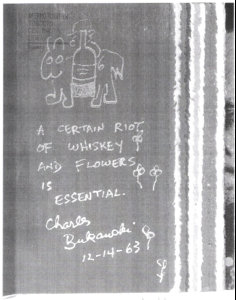 A CERTAIN RIOT
OF WHISKEY
AND FLOWERS
IS
ESSENTIAL.
Charles
Bukowski
12-14-63